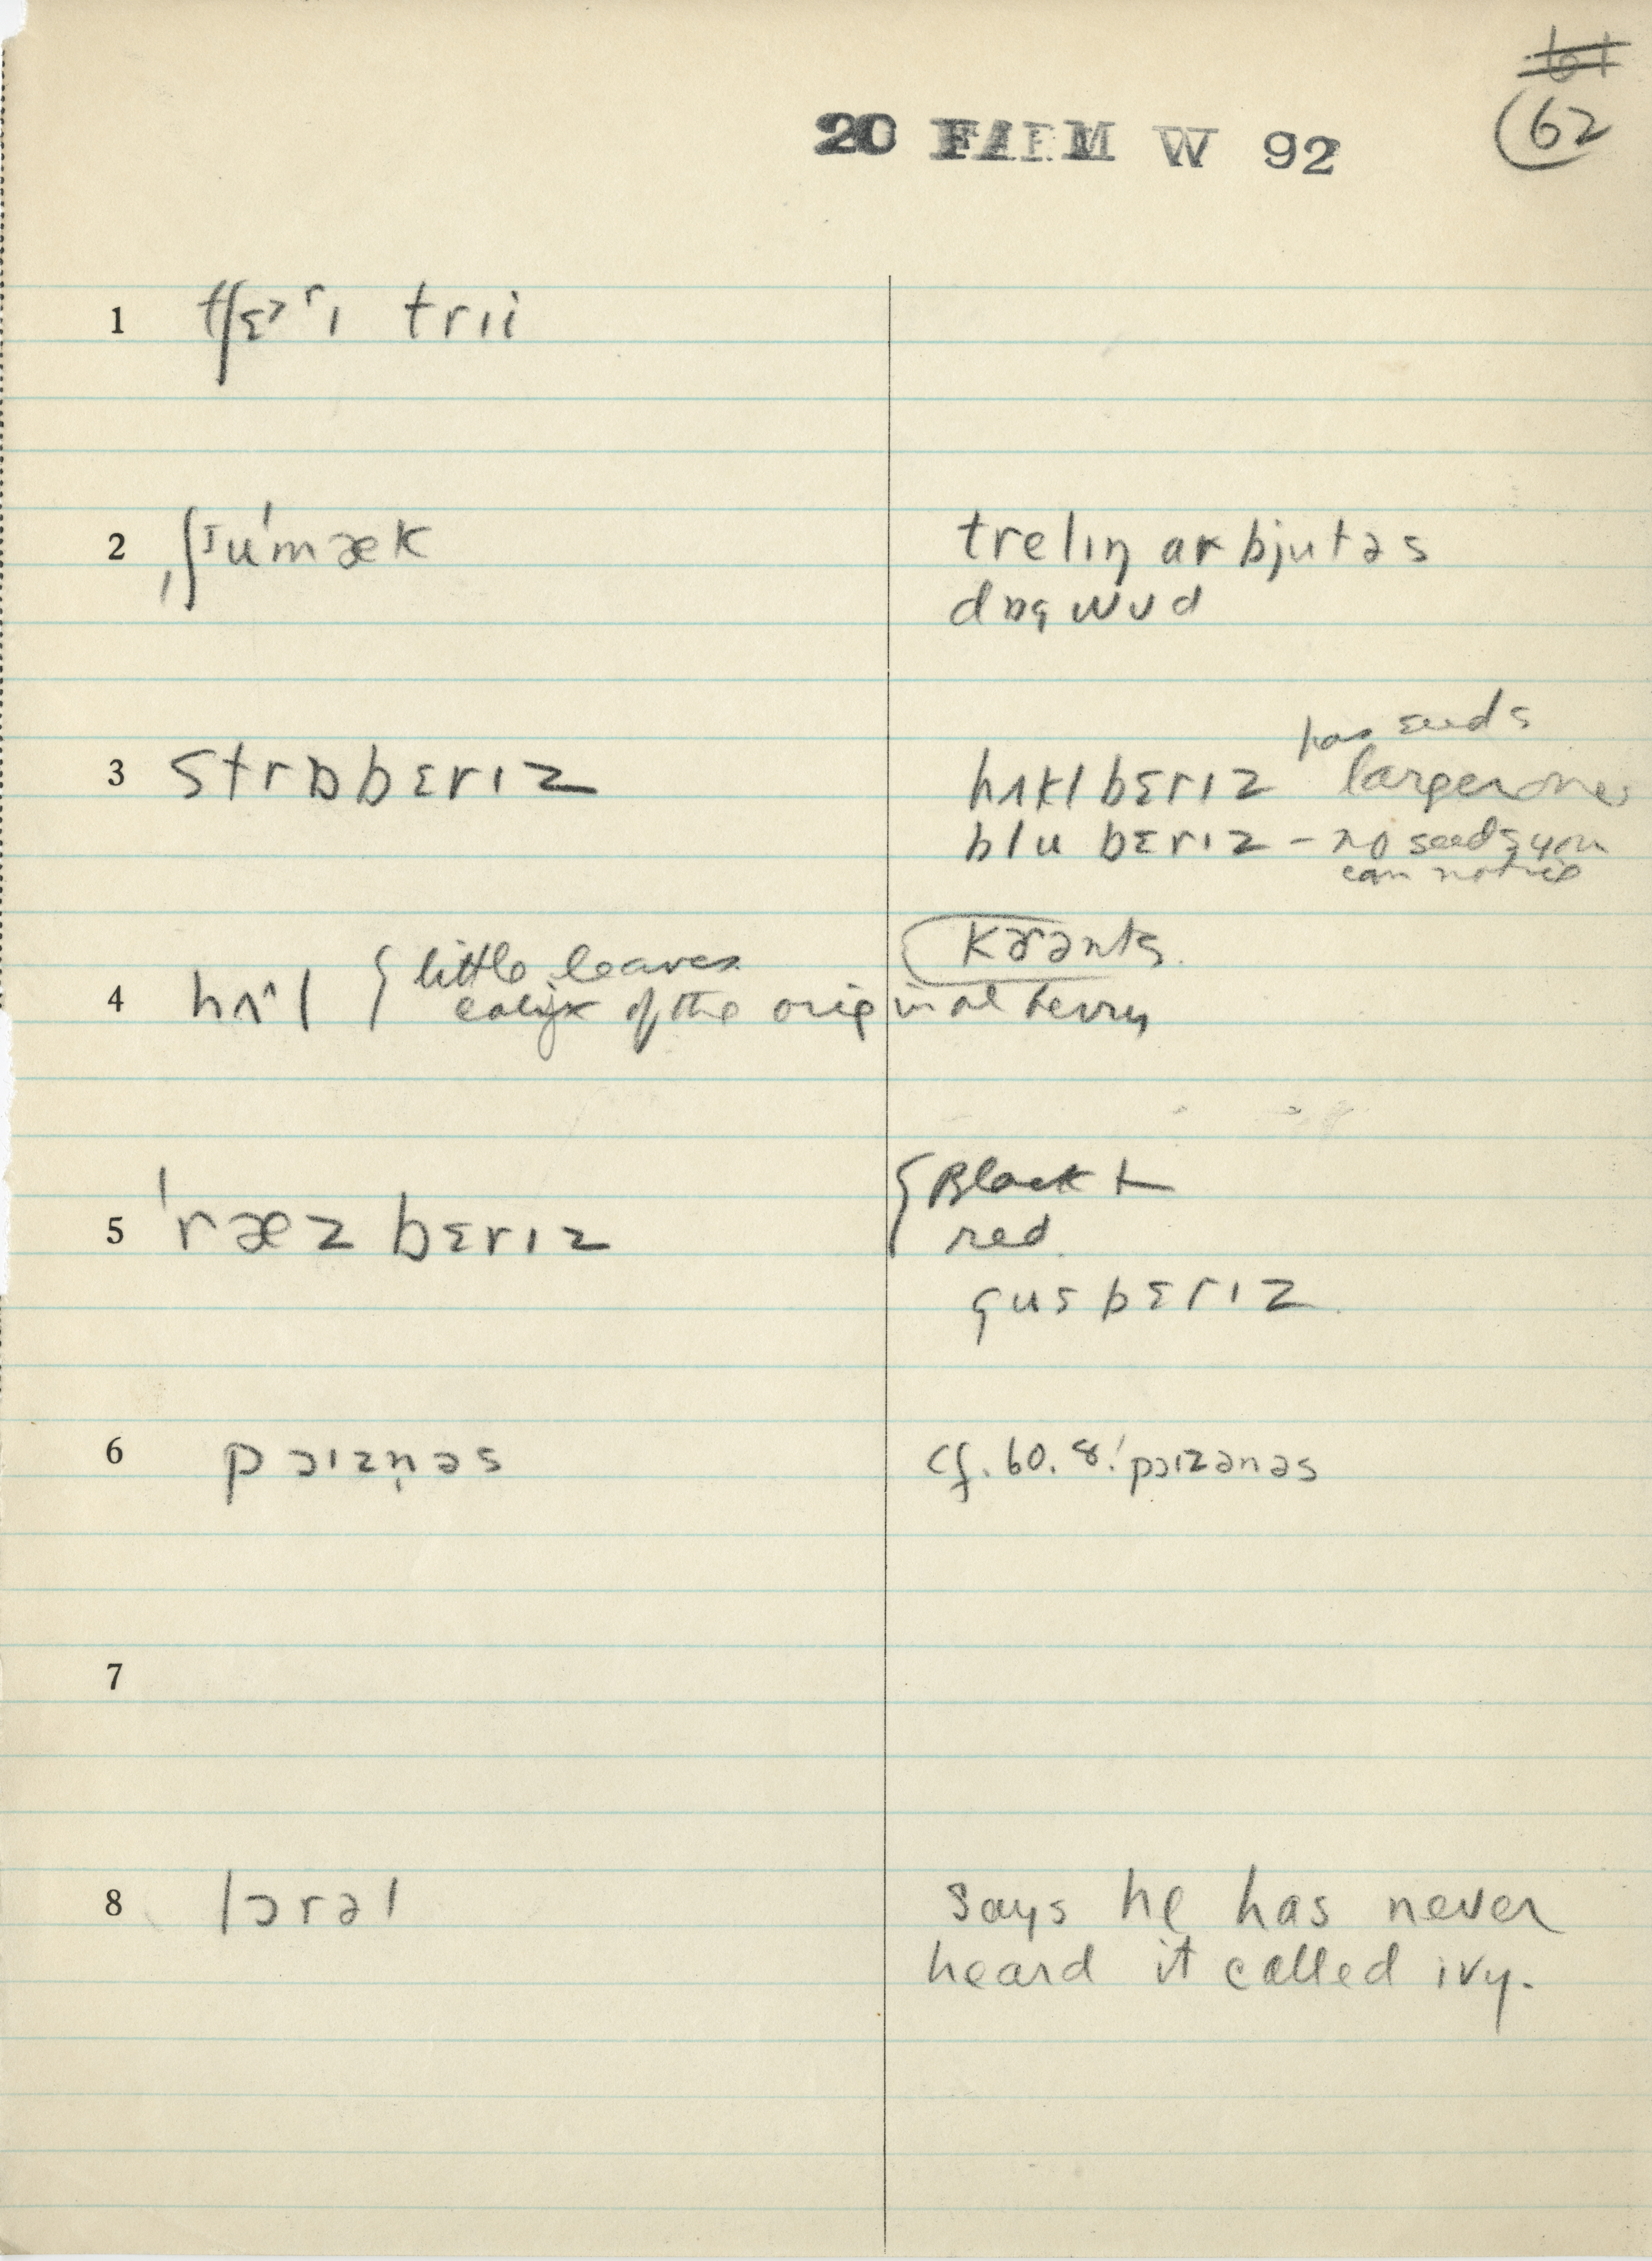 61
62
20 FARM W 92
1 tʃɛᵊʳɪ trɪi
2 ˌʃᶦu'mæk
trelɪŋ arbjutəs
dɒg wʊd
3 strɒbɛrɪz
has seeds
hʌkl bɛrɪz larger one
blu bɛrɪz – no seeds you
can notice
4 hʌ^l { little leaves
calyx of the original berry
kɚənts.
5 'ræz bɛrɪz
{ Black +
red
gusbɛrɪz.
6 pɔɪzn̩əs
cf. 60.8! pɔɪzənəs
7
8 lɔrəl
says he has never
heard it called ivy.